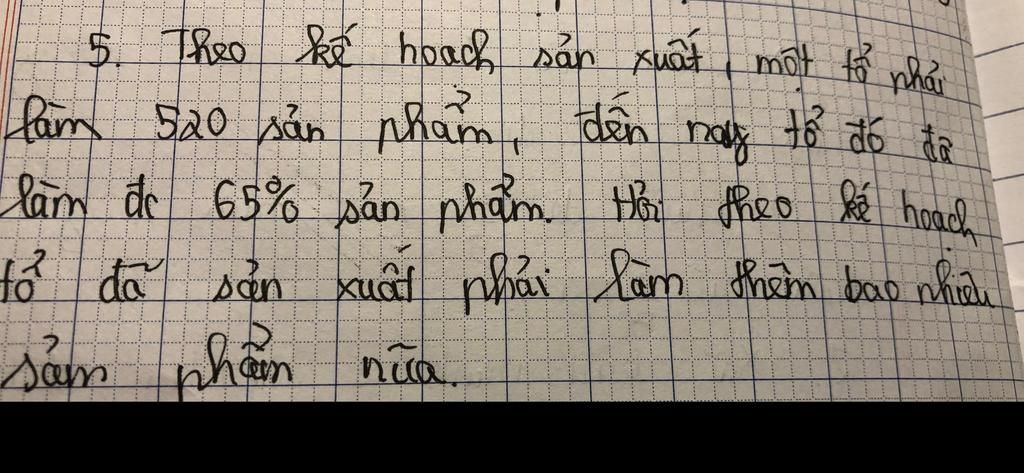 5. Theo kế hoach sản xuất, một tổ phải
làm 520 sản phẩm, đến nay tổ đó đã
làm đc 65% sản phẩm. Hỏi theo kế hoach
tổ đã sản xuất phải làm thêm bao nhiêu
sảm phẩm nữa.